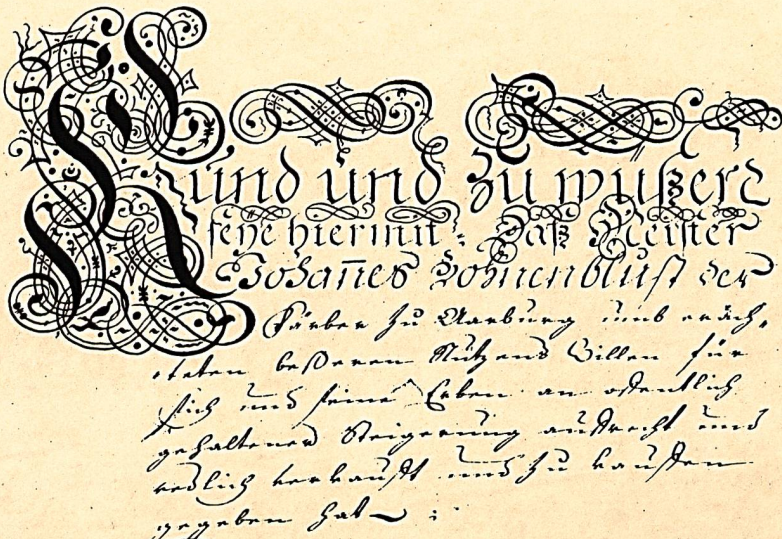 Kund und zu wüßen
seye hiermit: Daß Meister
Johañes Sohnenblust der
Färber zu Aarburg umb eräch-
teten beßeren Nutzens Willen für
sich und seine Erben an offentlich
gehaltener Steigerung auffrecht und
redlich verkaufft und zu kauffen
gegeben hat :